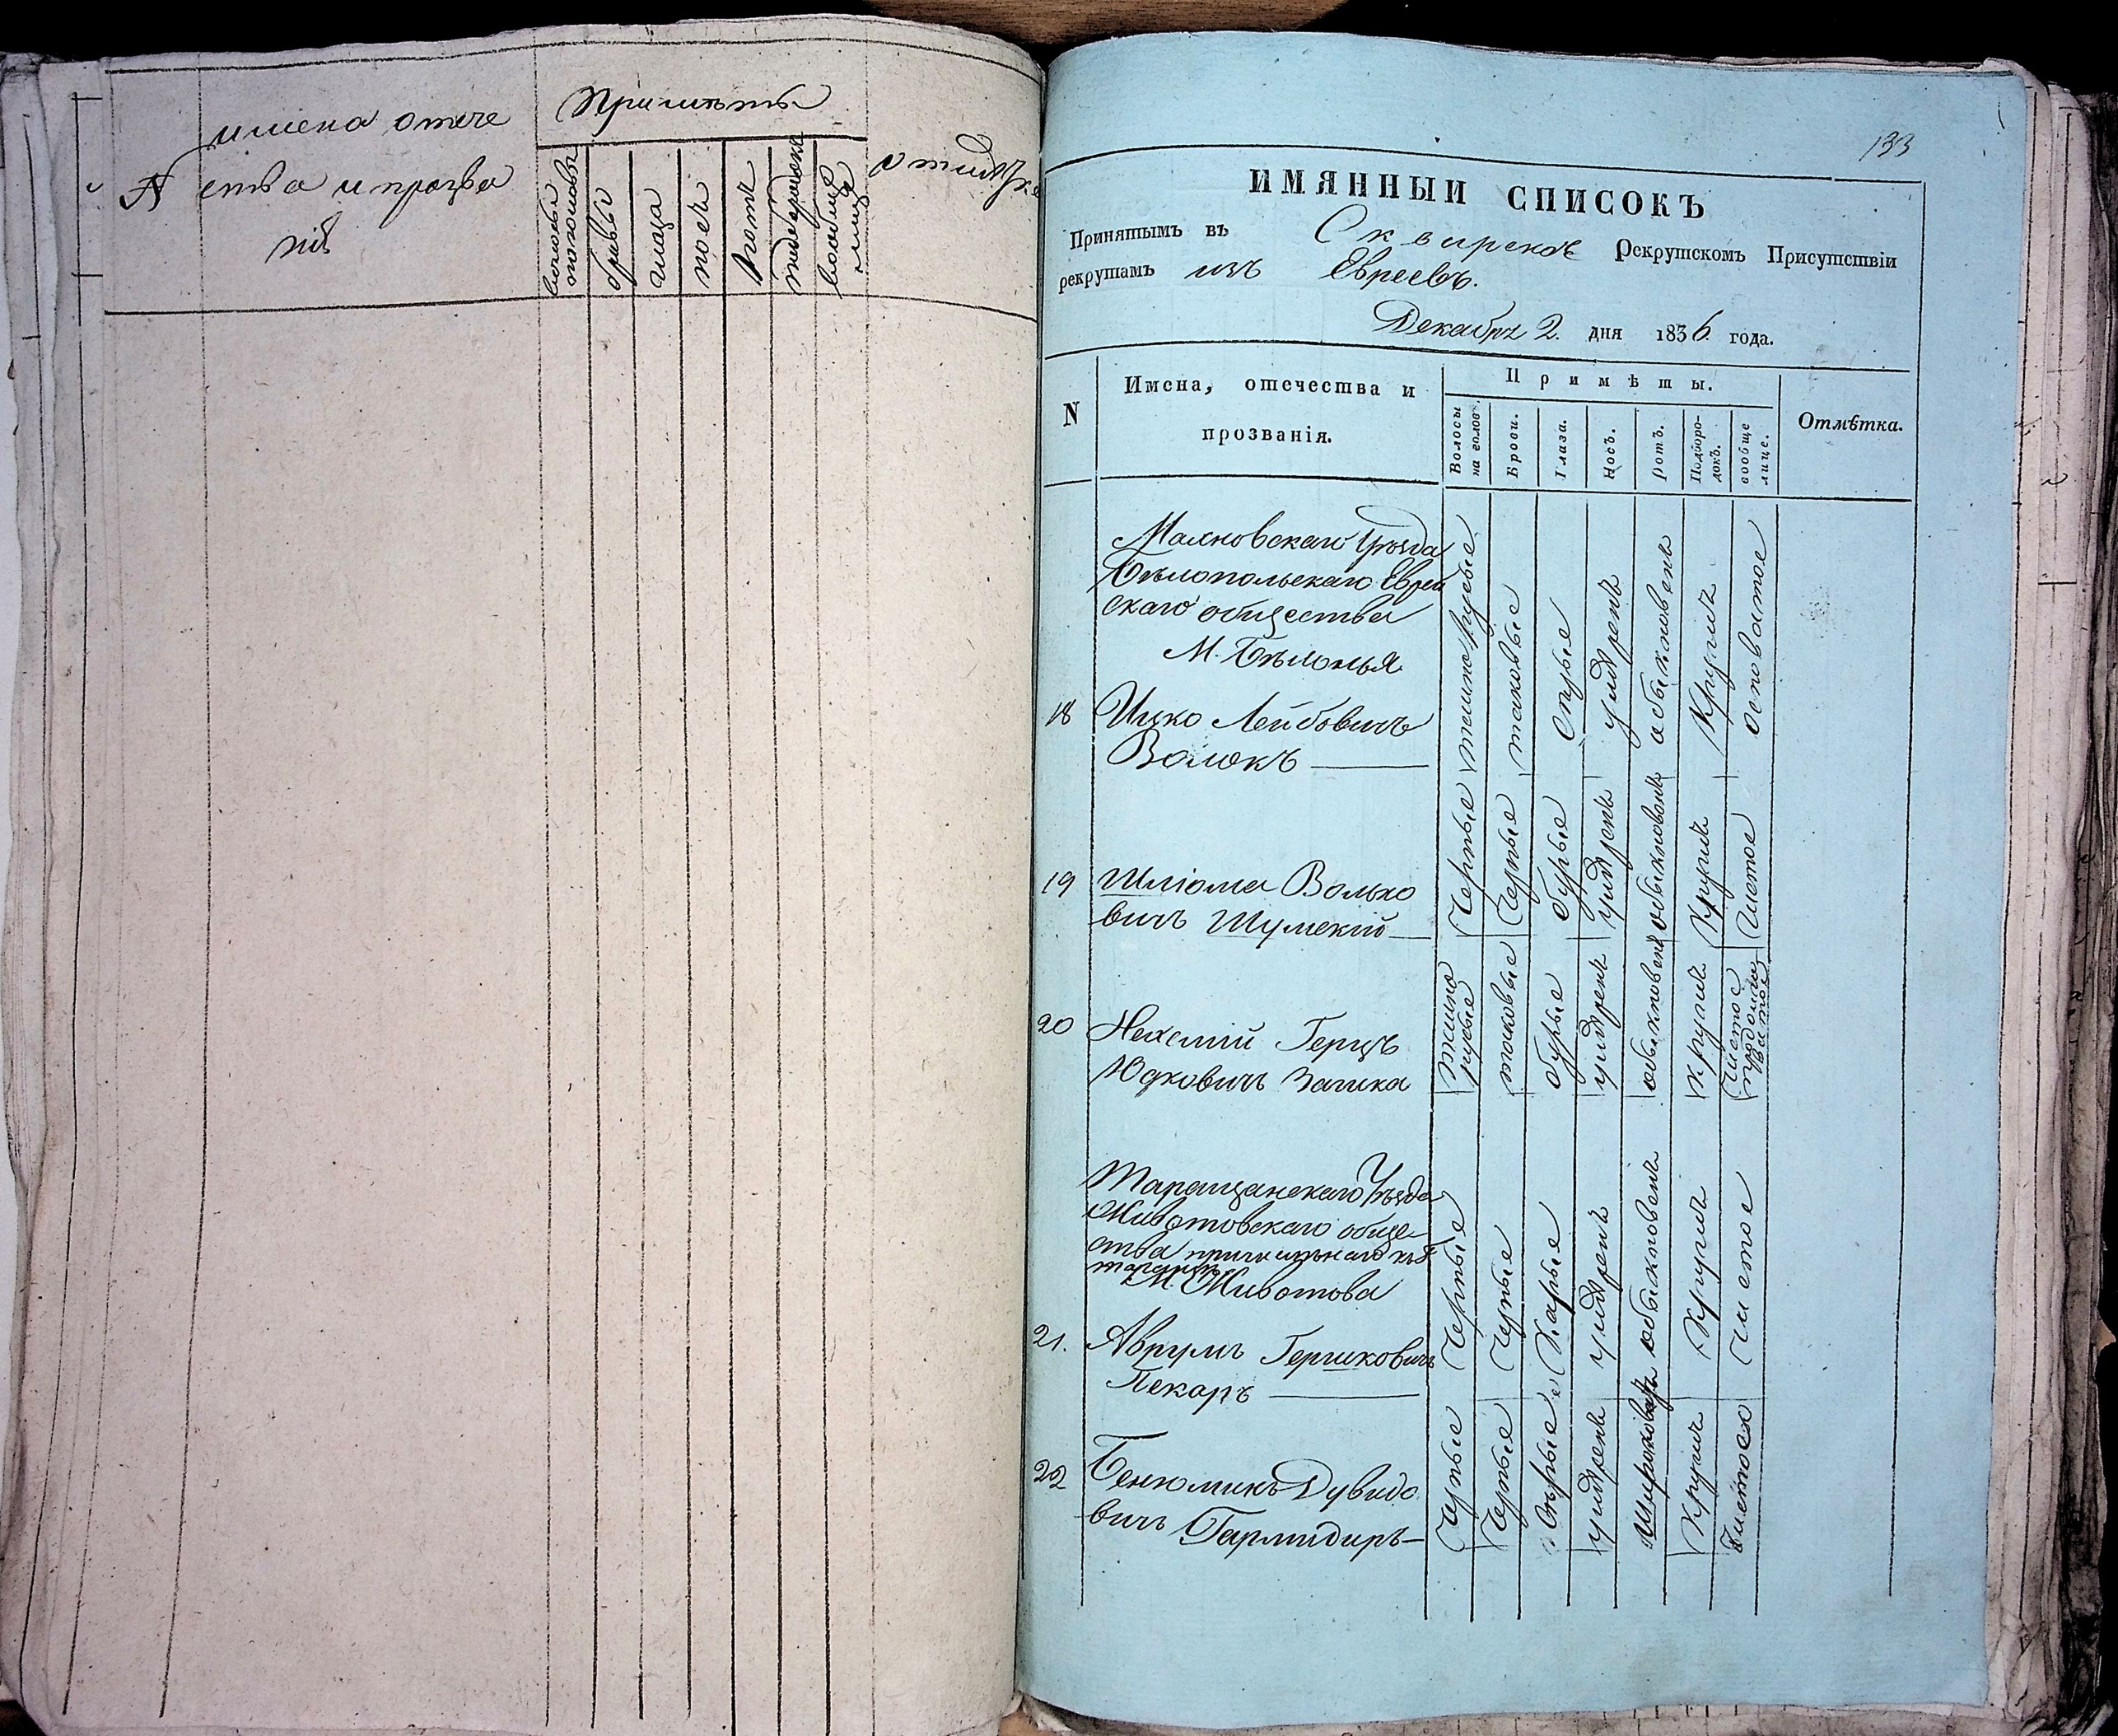 N
имена отече
ства и прозва
нія
Примѣты
волосы
на головѣ
брови
глаза
носъ
ротъ
подбородокъ
вообще
лице
отмѣтка
133
ИМЯННЫИ СПИСОКЪ
Принятымъ въ Сквирское Рекрутскомъ Присутствіи
рекрутамъ изъ Евреевъ.
Декабря 2. дня 1836. года.
N
Имена, отечества и
прозванія.
Примѣты.
Волосы
на голов.
Брови.
Глаза.
Носъ.
ротъ.
Подборо-
докъ.
вообще
лице.
Отмѣтка.
Махновскаго Уѣзда
Бѣлопольскаго Еврей
скаго общества
М. Бѣлополья
18 Ицко Лейбовичъ
Волокъ
темнорусые
таковые
Сѣрые
умѣренъ
обыкновенъ
Круглъ
осповатое
19 Шліома Волько
вичъ Шумскій
Черные
Черные
бурые
умѣренъ
обыкновенъ
Круглъ
Чистое
20 Нехемій Герцъ
Юдковичъ Заика
темно
русые
таковые
бурые
умѣренъ
обыкновенъ
круглъ
Чистое
продолго
ватое
Таращанскаго Уѣзда
Животовскаго обще-
ства
М. Животова
21. Аврумъ Гершковичъ
Пекаръ
Черные
Черные
Карые
умѣренъ
обыкновенъ
Круглъ
Чистое
22 Бенюминъ Дувидо
вичъ
Черные
Черные
Сѣрые
умѣренъ
Круглъ
Чистое